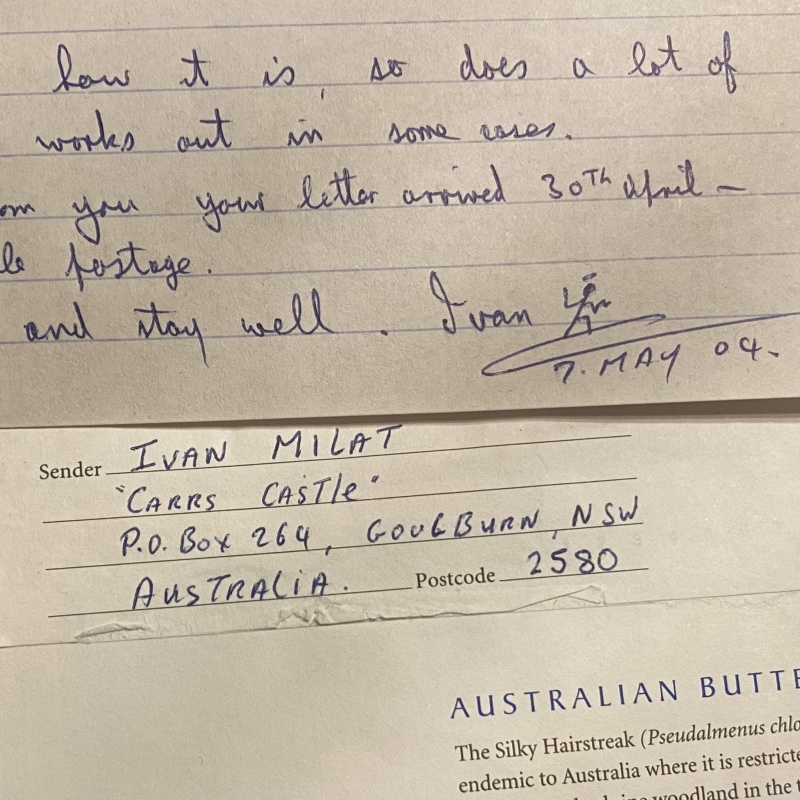 how it is, so does a lot of
works out in some cases.
om you your letter arrived 30TH April –
le postage.
and stay well. Ivan
7. MAY 04.
Sender IVAN MILAT
"CARRS CASTle"
P.O. BOX 264, GOULBURN, NSW
AUSTRALiA. Postcode 2580
AUSTRALIAN BUTTE
The Silky Hairstreak (Pseudalmenus chlo
endemic to Australia where it is restricte
woodland in the t